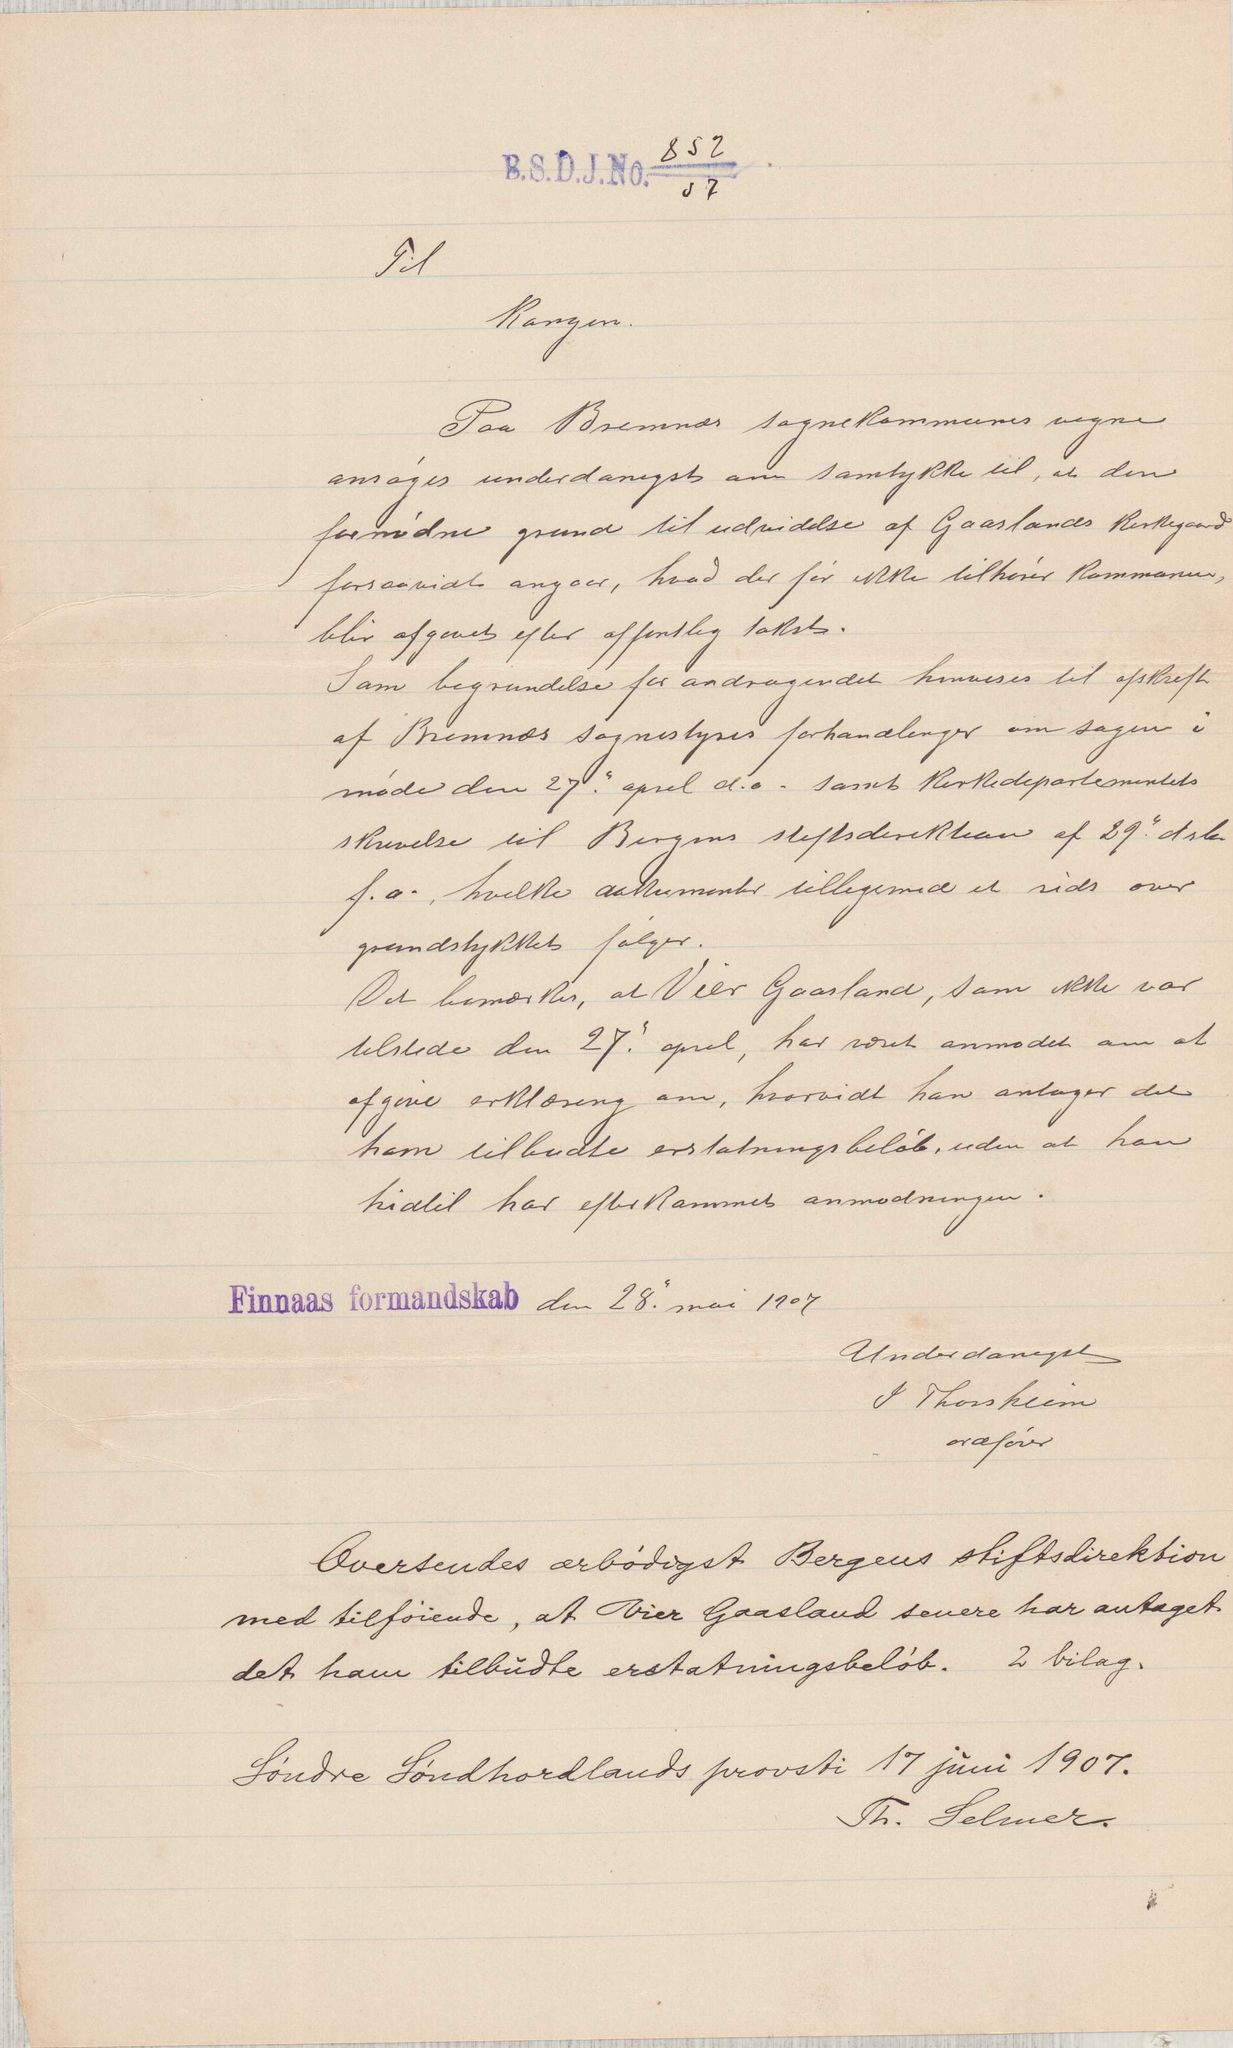 B.S.D.J.No. 852
07
Til
Kongen.
Paa Bremnæs sognekommunes vegne
ansøges underdanigst om samtykke til, at den
fornødne grund til udvidelse af Gaaslands kirkegaard
forsaavidt angaar, hvad der før ikke tilhører kommunen,
blir afgivet efter offentlig takst.
Som begrundelse for andragendet henvises til afskrift
af Bremnæs sognestyres forhandlinger om sagen i
møde den 27. april d.a. samt kirkedepartementets
skrivelse til Bergens stiftsdirektion af 29. oktbr
f.a., hvilke dokumenter tilligemed et rids over
grundstykket følger.
Det bemærkes, at Vier Gaasland, som ikke var
tilstede den 27. april, har været anmodet om at
afgive erklæring om, hvorvidt han antager det
ham tilbudte erstatningsbeløb, uden at han
hidtil har efterkommet anmodningen.
Finnaas formandskab den 28. mai 1907
Underdanigst
I Thorsheim
ordfører
Oversendes ærbødigst Bergens stiftsdirektion
med tilføiende, at Vier Gaasland senere har antaget
det ham tilbudte erstatningsbeløb. 2 bilag.
Søndre Søndhordlands provsti 17 juni 1907.
Th. Selmer.